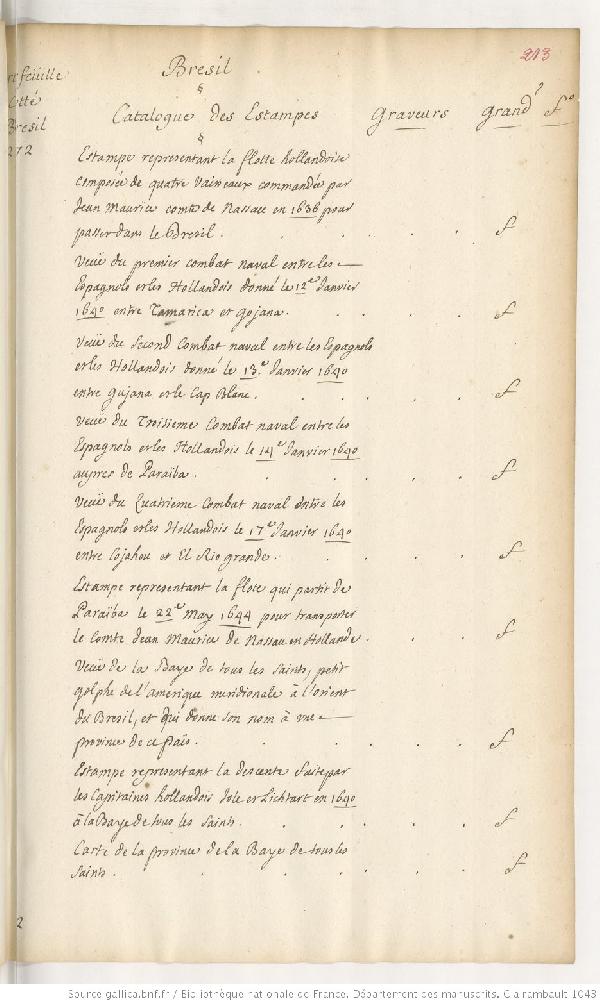 213
Bresil
§
refeüille
Cotté
Bresil
272
Catalogue des Estampes Graveurs Grand? f°
§
Estampe representant la flotte hollandoise
Composée de quatre Vaisseaux commandée par
Jean Maurice comte de Nassau en 1636 pour
passer dans le Bresil. f
Veüe du premier combat naval entre les
Espagnols et les Hollandois donné le 12e Janvier
1640 entre Tamarica et gojana. f
Veüe du Second Combat naval entre les Espagnols
et les Hollandois donné le 13e Janvier 1640
entre gujana et le Cap Blanc. f
Veüe du Troisieme Combat naval entre les
Espagnols et les Hollandois le 14e Janvier 1640
aupres de Paraiba. f
Veüe du Quatrieme Combat naval entre les
Espagnols et les Hollandois le 17e Janvier 1640
entre Cojahou et El Rio grande. f
Estampe representant la flote qui partit de
Paraiba le 22e May 1644 pour transporter
le Comte Jean Maurice de Nassau en Hollande. f
Veüe de la Baye de tous les Saints, petit
golphe de l'amerique meridionale à l'orient
du Bresil, et qui donne son nom à une
province de ce païs. f
Estampe representant la descente faite par
les Capitaines hollandois Jole et Lichtart en 1640
à la Baye de tous les Saints. f
Carte de la province de la Baye de tous les
Saints. f
2
Source gallica.bnf.fr / Bibliothèque nationale de France. Département des manuscrits. Clairambault 1043